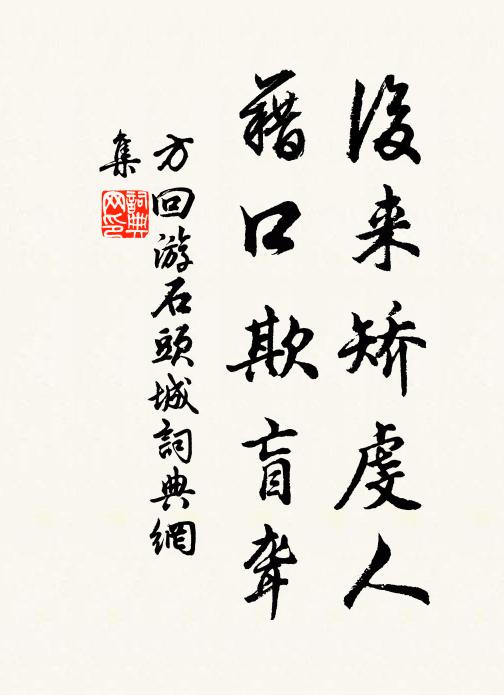 後来矫虔人
藉口欺盲聋
方回游石頭城詞典網
集
詞典网印